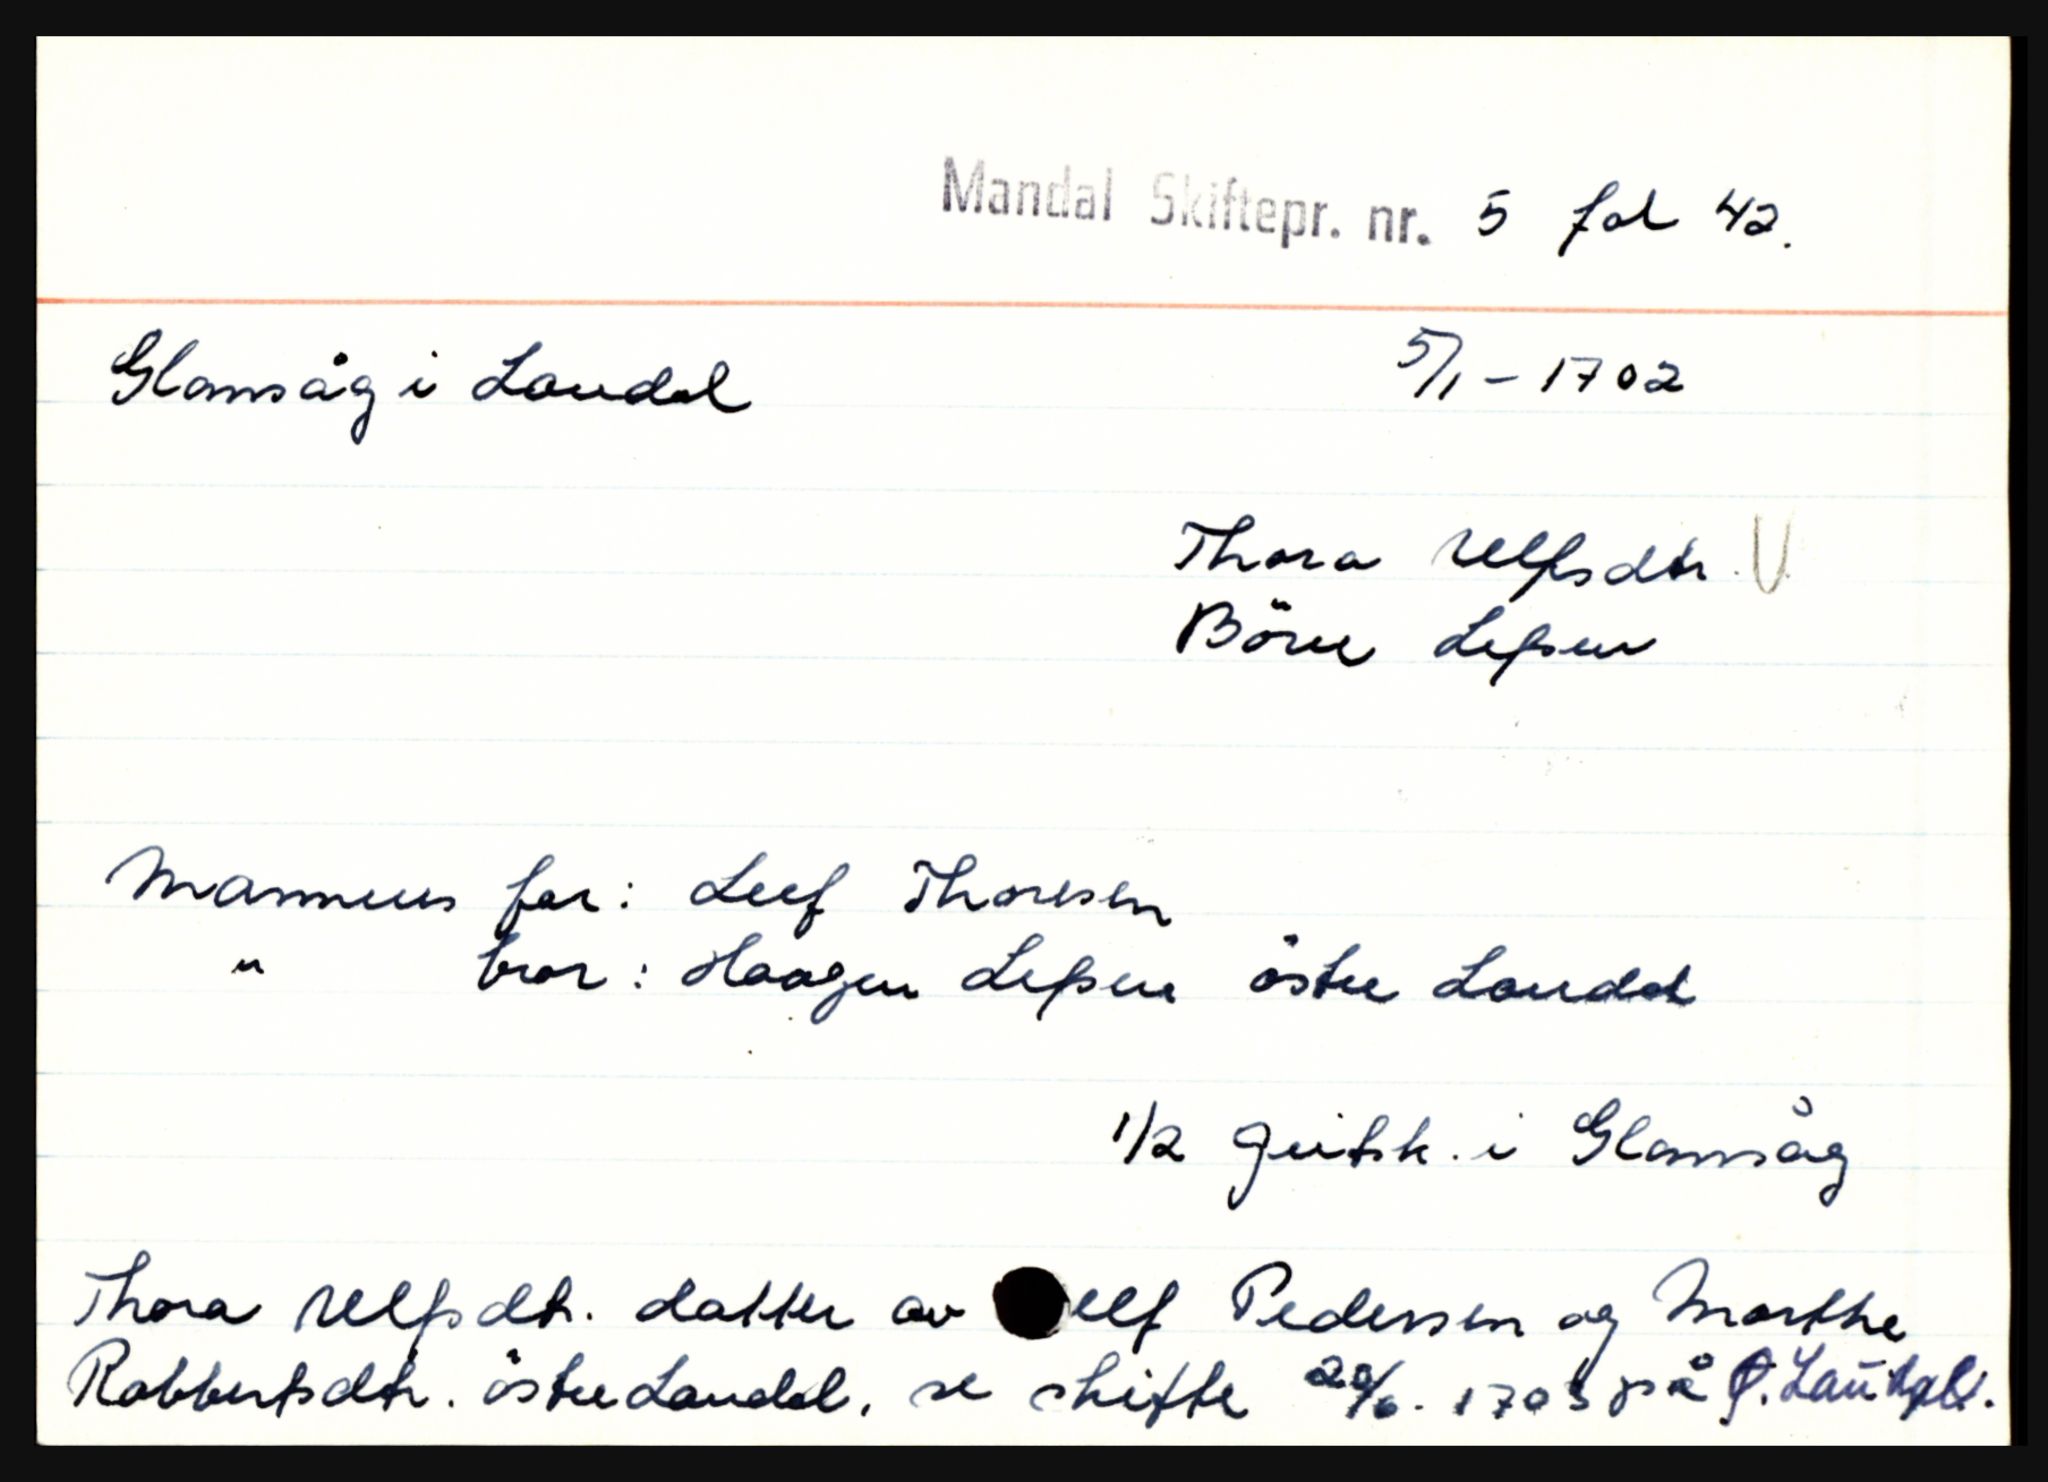 Mandal Skiftepr. nr. 5 fol 42.
Glamsåg i Laudal 5/1 - 1702
Thora Ulfsdtr.
Börre Lefsen
Mannens far: Leef Thoresen
" bror: Haagen Lefsen östre Laudal
1/2 geitsk. i Glamsåg
Thora Ulfsdtr. datter av elf Pedersen og Marthe
Robbertsdtr. östre Laudal, se skifte /6. 1703 på Ø. Laudal.